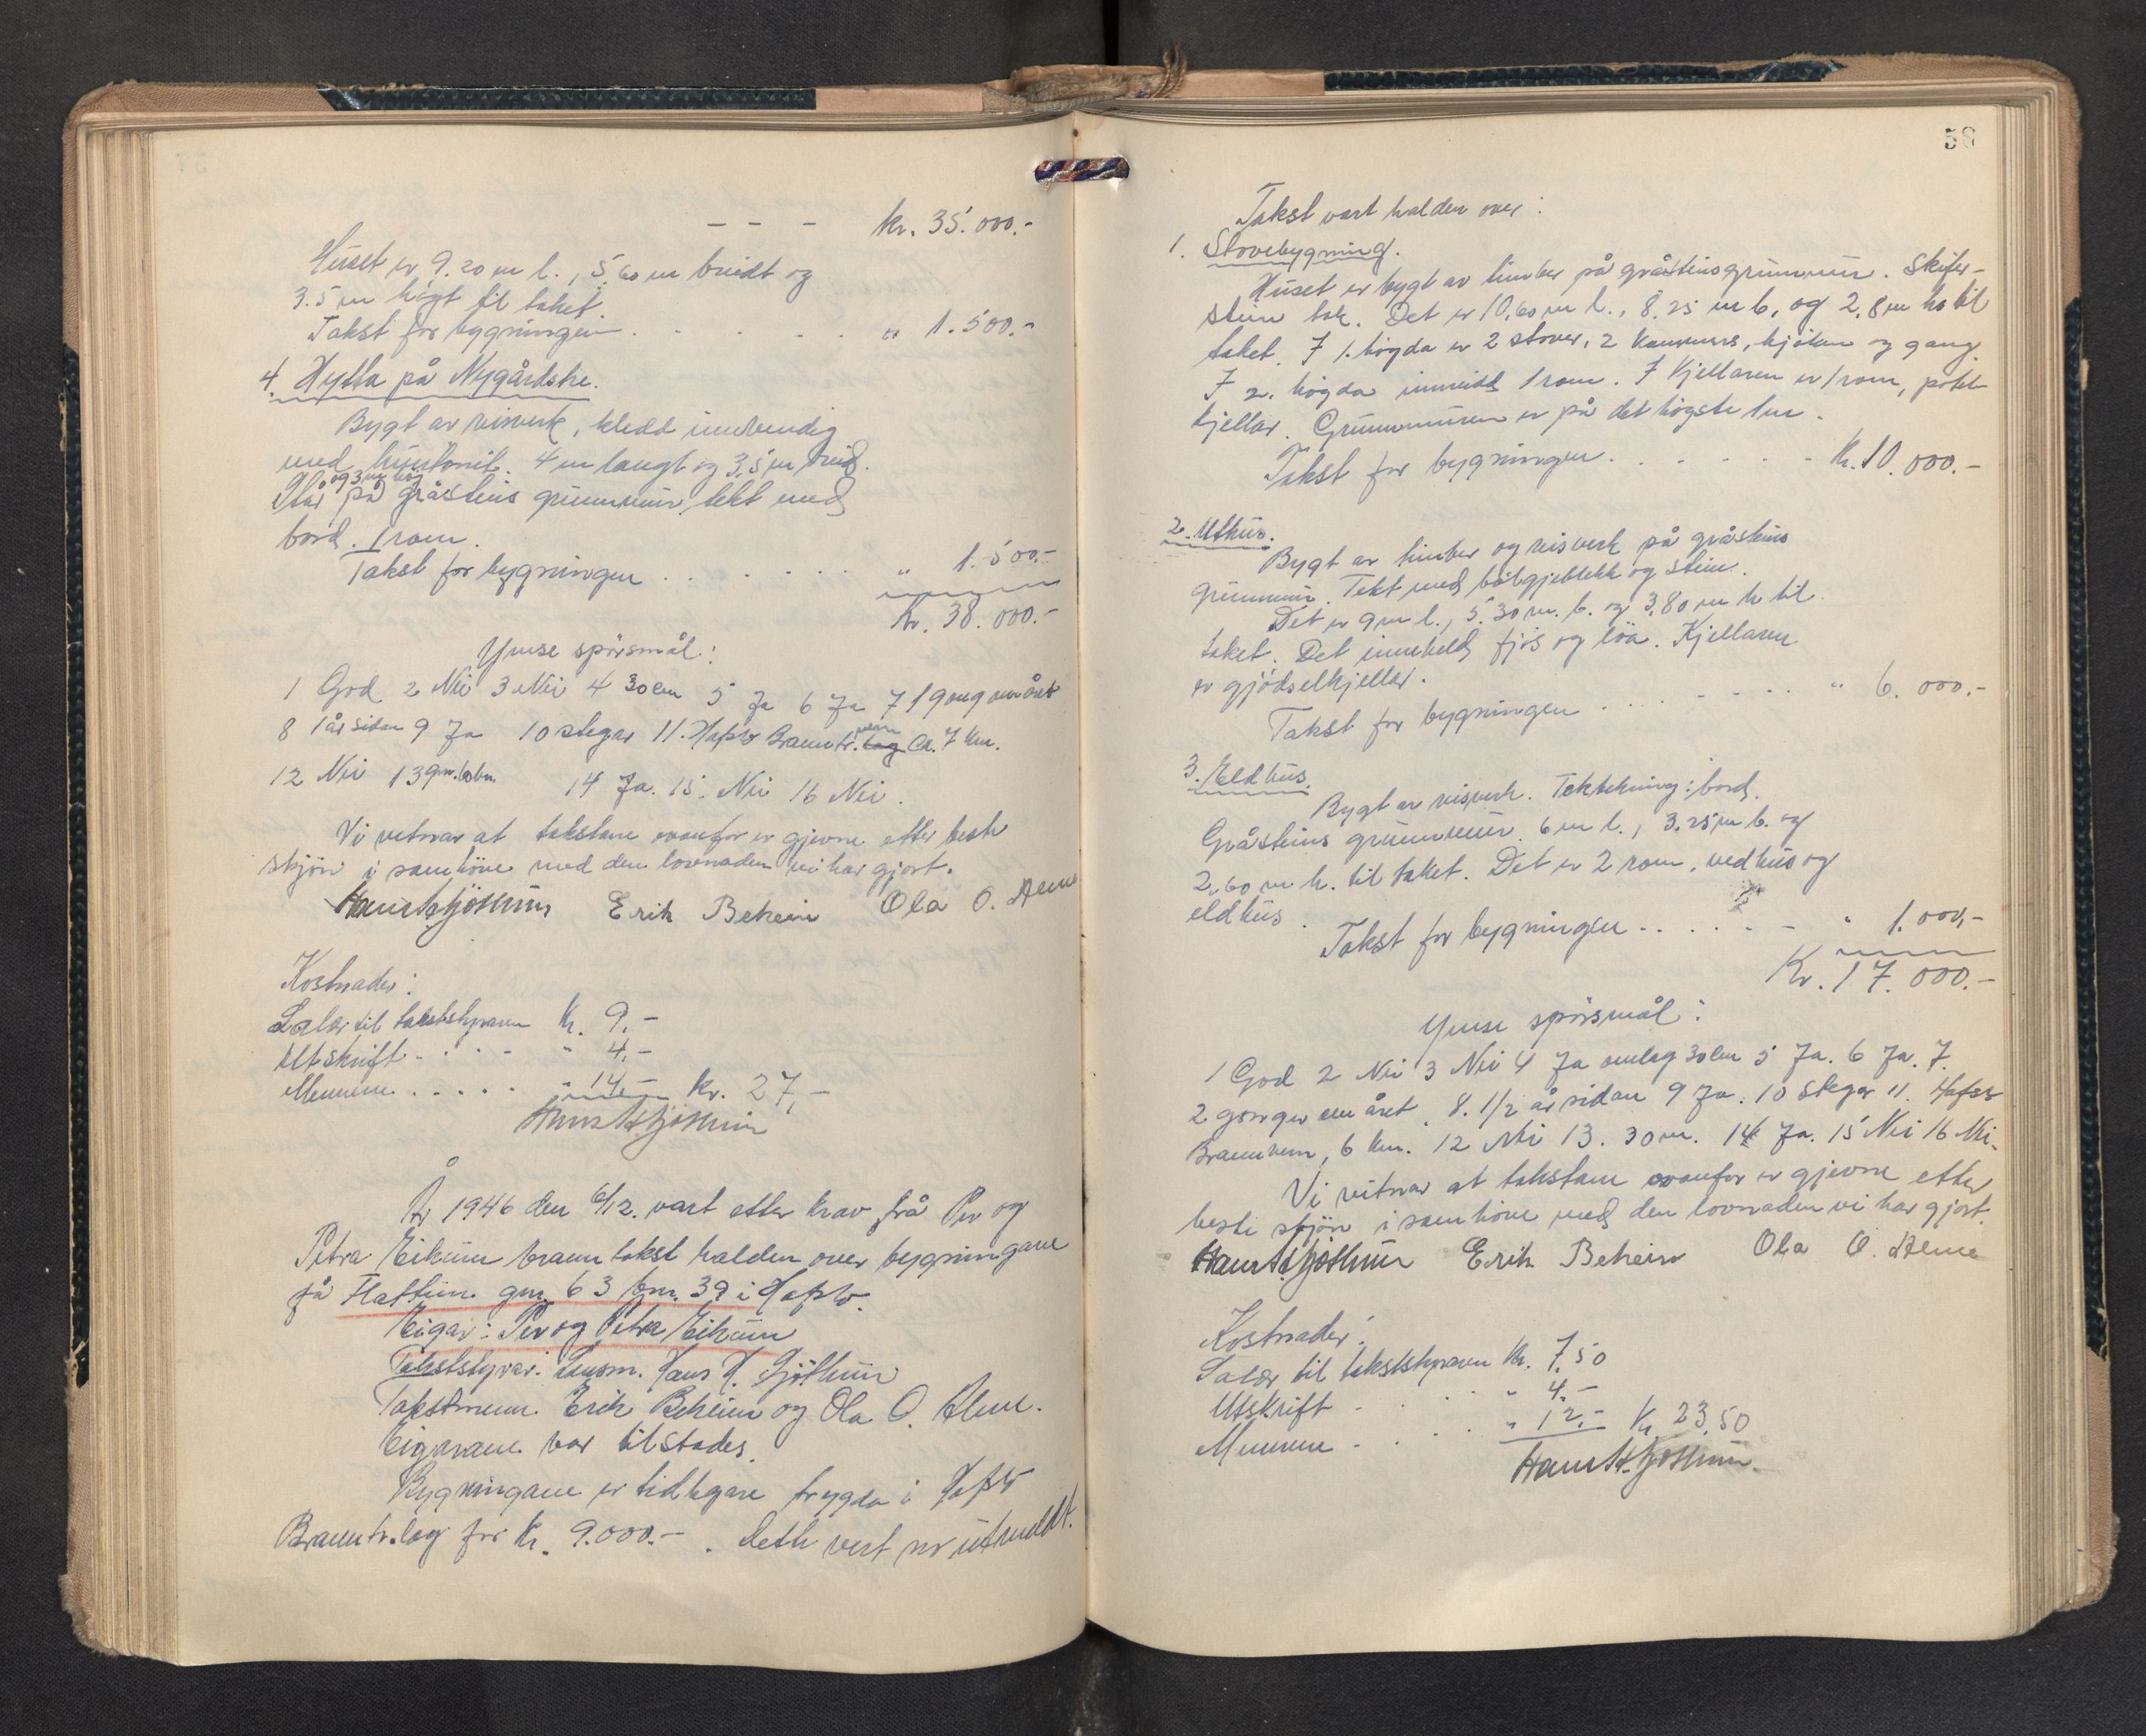 - - - kr. 35.000.-
Huset er 9.20 m l., 5,60 m breidt og
3.5 m högt til taket.
Takst for bygningen. . . . . " 1.500.-
4. Hytta på Nygårdstre.
Bygt av reisverk, kledd innvendig
med huntonit. 4 m langt og 3,5 m breid.
og 3 m høg
Står på gråsteins grunnmur, tekt med
bord. 1 rom.
Takst for bygningen . . . . . . " 1.500.-
Kr. 38.000.-
Ymse spörsmål:
1 God 2 Nei 3 Nei 4 30 cm 5 Ja 6 Ja 7 1 gong om året
8 1 år sidan 9 Ja 10 stegar 11. Hafslo Branntr. lag Ca. 7 km.
vern
12 Nei 13 14 Ja. 15. Nei 16 Nei.
Vi vitnar at takstane ovanfor er gjevne etter beste
skjön i samhöve med den lovnaden vi har gjort.
Hans H. Gjöthun Erik Beheim Ola O. Alme
Kostnader:
Salær til takststyraren Kr. 9.-
Utskrift . . . . " 4.-
Mennene . . . . . " 14.- kr. 27,-
Hans H. Gjöthun
År 1946 den 6/12. vart etter krav frå Per og
Petra Eikum branntakst halden over bygningane
på Flattun gnr. 63 bnr. 39 i Hafslo.
Eigar: Per og Petra Eikum
Takststyrar: Lensm. Hans H. Gjöthun
Takstmenn: Erik Beheim og Ola O. Alme.
Eigarane var tilstades.
Bygningane er tidlegare trygda i Hafslo
Branntr.lag for Kr. 9.000.-. Dette vert no utmeldt.
58
Takst vart halden over:
1. Stovebygning.
Huset er bygt av timber på gråsteinsgrunnmur. Skifer-
stein tak. Det er 10,60 m l., 8.25 m b. og 2,8 m h til
taket. I 1. högda er 2 stover, 2 kammers, kjöken og gang.
I 2. högda innreidd 1 rom. I kjellaren er 1 rom, potet-
kjellar. Grunnmuren er på det högste 1 m.
Takst for bygningen. . . . . . . Kr. 10.000.-
2. Uthus.
Bygt av timber og reisverk på gråsteins
grunnmur. Tekt med bölgjeblekk og stein.
Det er 9 m l., 5.30 m. b. og 3,80 m h til
taket. Det inneheld fjös og löa. Kjellaren
er gjödselkjellar.
Takst for bygningen . . . . . . . " 6.000.-
3. Eldhus.
Bygt av reisverk. Taktekning: bord.
Gråsteins grunnmur. 6 m l., 3.25 m b. og
2,60 m h. til taket. Det er 2 rom, vedhus og
eldhus.
Takst for bygningen . . . . . . " 1.000,-
Kr. 17.000.-
Ymse spörsmål:
1 God 2 Nei 3 Nei 4 Ja omlag 30 cm 5 Ja. 6 Ja. 7.
2 gonger om året. 8. 1/2 år sidan 9 Ja. 10 Stegar 11. Hafslo
Brannvern, 6 km. 12 Nei 13. 30 m. 14 Ja. 15 Nei 16 Nei.
Vi vitnar at takstane ovanfor er gjevne etter
beste skjön i samhöve med den lovnaden vi har gjort.
Hans H. Gjöthun Erik Beheim Ola O. Alme
Kostnader:
Salær til takststyraren Kr. 7.50
Utskrift . . . . " 4.-
Mennene . . . . " 12.- Kr. 23,50
Hans H. Gjöthun.